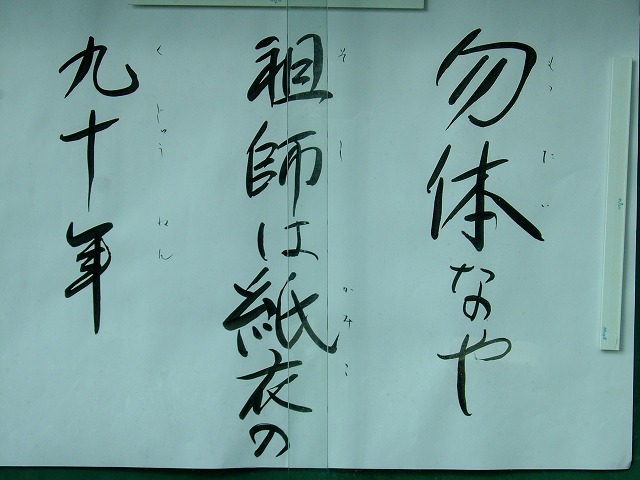 勿体なや
もったい
祖師は紙衣の
そし かみこ
九十年
くじゅうねん